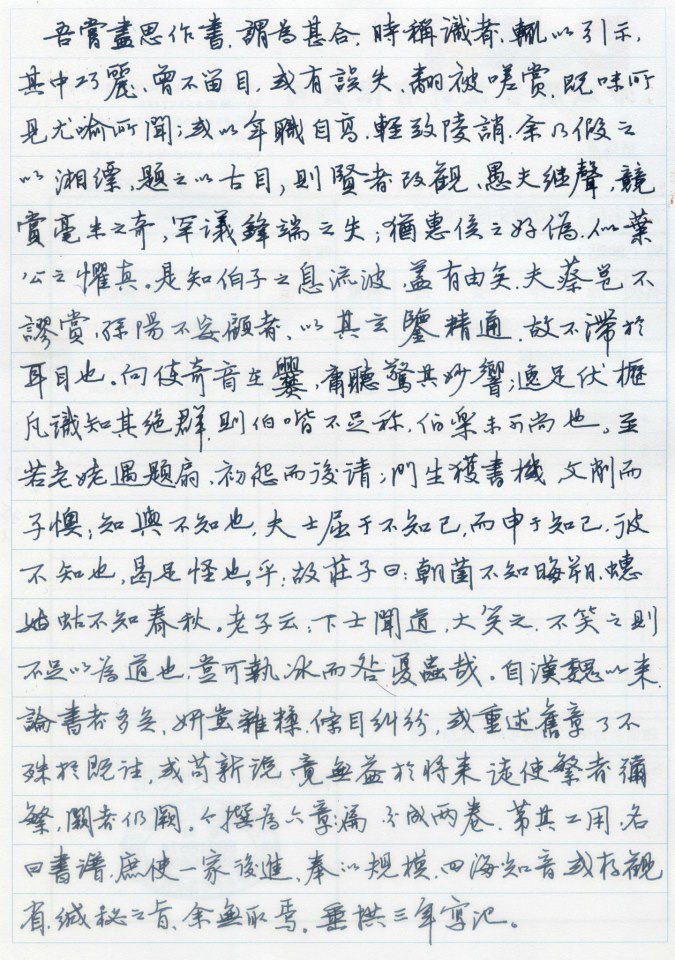 吾嘗盡思作書，謂為甚合，時稱識者，輒以引示，
其中巧麗，曾不留目，或有誤失，翻被嗟賞，既昧所
見尤喻所聞；或以年職自高，輕致陵誚，余乃假之
以湘縹，題之以古目，則賢者改觀，愚夫繼聲，競
賞毫末之奇，罕議鋒端之失；猶惠侯之好偽，似葉
公之懼真。是知伯子之息流波，蓋有由矣，夫蔡邕不
謬賞，孫陽不妄顧者，以其玄鑒精通，故不滯於
耳目也。向使奇音在爨，庸聽驚其妙響；逸足伏櫪
凡識知其絕群，則伯喈不足称，伯樂未可尚也。至
若老姥遇題扇，初怨而後請；門生獲書機，父削而
子懊；知與不知也，夫士屈于不知己，而申于知己，彼
不知也，曷足怪也。乎；故莊子曰：朝菌不知晦朔，蟪
姑蛄不知春秋。老子云：下士聞道，大笑之，不笑之則
不足以為道也，豈可執冰而咎夏蟲哉。自漢魏以来，
論書者多矣，妍蚩雜糅，條目糾紛，或重述舊章了不
殊於既往，或苟新说，竟無益於將来，徒使繁者彌
繁，闕者仍闕。今撰為六章篇，分成兩卷，第其工用，名
曰書譜，庶使一家後進，奉以規模，四海知音，或存觀
省，缄秘之旨，余無取焉。垂拱三年寫記。